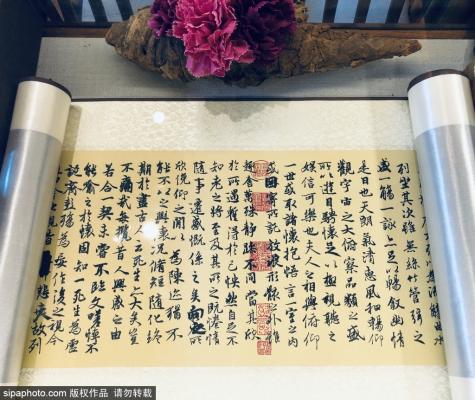 曲水
列坐其次雖無絲竹管弦之
盛一觴一詠亦足以暢敘幽情
是日也天朗氣清惠風和暢仰
觀宇宙之大俯察品類之盛
所以遊目騁懷足以極視聽之
娛信可樂也夫人之相與俯仰
一世或取諸懷抱悟言一室之內
或因寄所託放浪形骸之外雖
趣舍萬殊靜躁不同當其欣
於所遇暫得於己怏然自足不
知老之將至及其所之既惓情
隨事遷感慨係之矣向之所
欣俛仰之閒以為陳迹猶不
能不以之興懷況脩短隨化終
期於盡古人云死生亦大矣豈
不痛哉每攬昔人興感之由
若合一契未嘗不臨文嗟悼不
能喻之於懷固知一死生為虛
誕齊彭殤為妄作後之視今
今之視昔悲夫故列
sipaphoto.com 版权作品 请勿转载